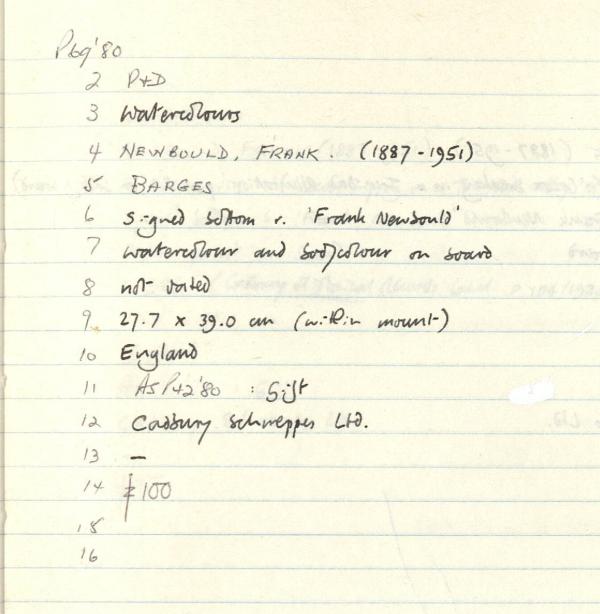 P69'80
2 P+D
3 Watercolours
4 NEWBOULD, FRANK. (1887-1951)
5 BARGES
6 signed bottom r. 'Frank Newbould'
7 watercolour and bodycolour on board
8 not dated
9 27.7 x 39.0 cm (within mount)
10 England
11 As P42'80 : Gift
12 Cadbury Schweppes Ltd.
13 –
14 £100
15
16